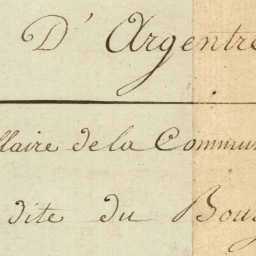 D'Argentré
llaire de la Commun
dite du Bour